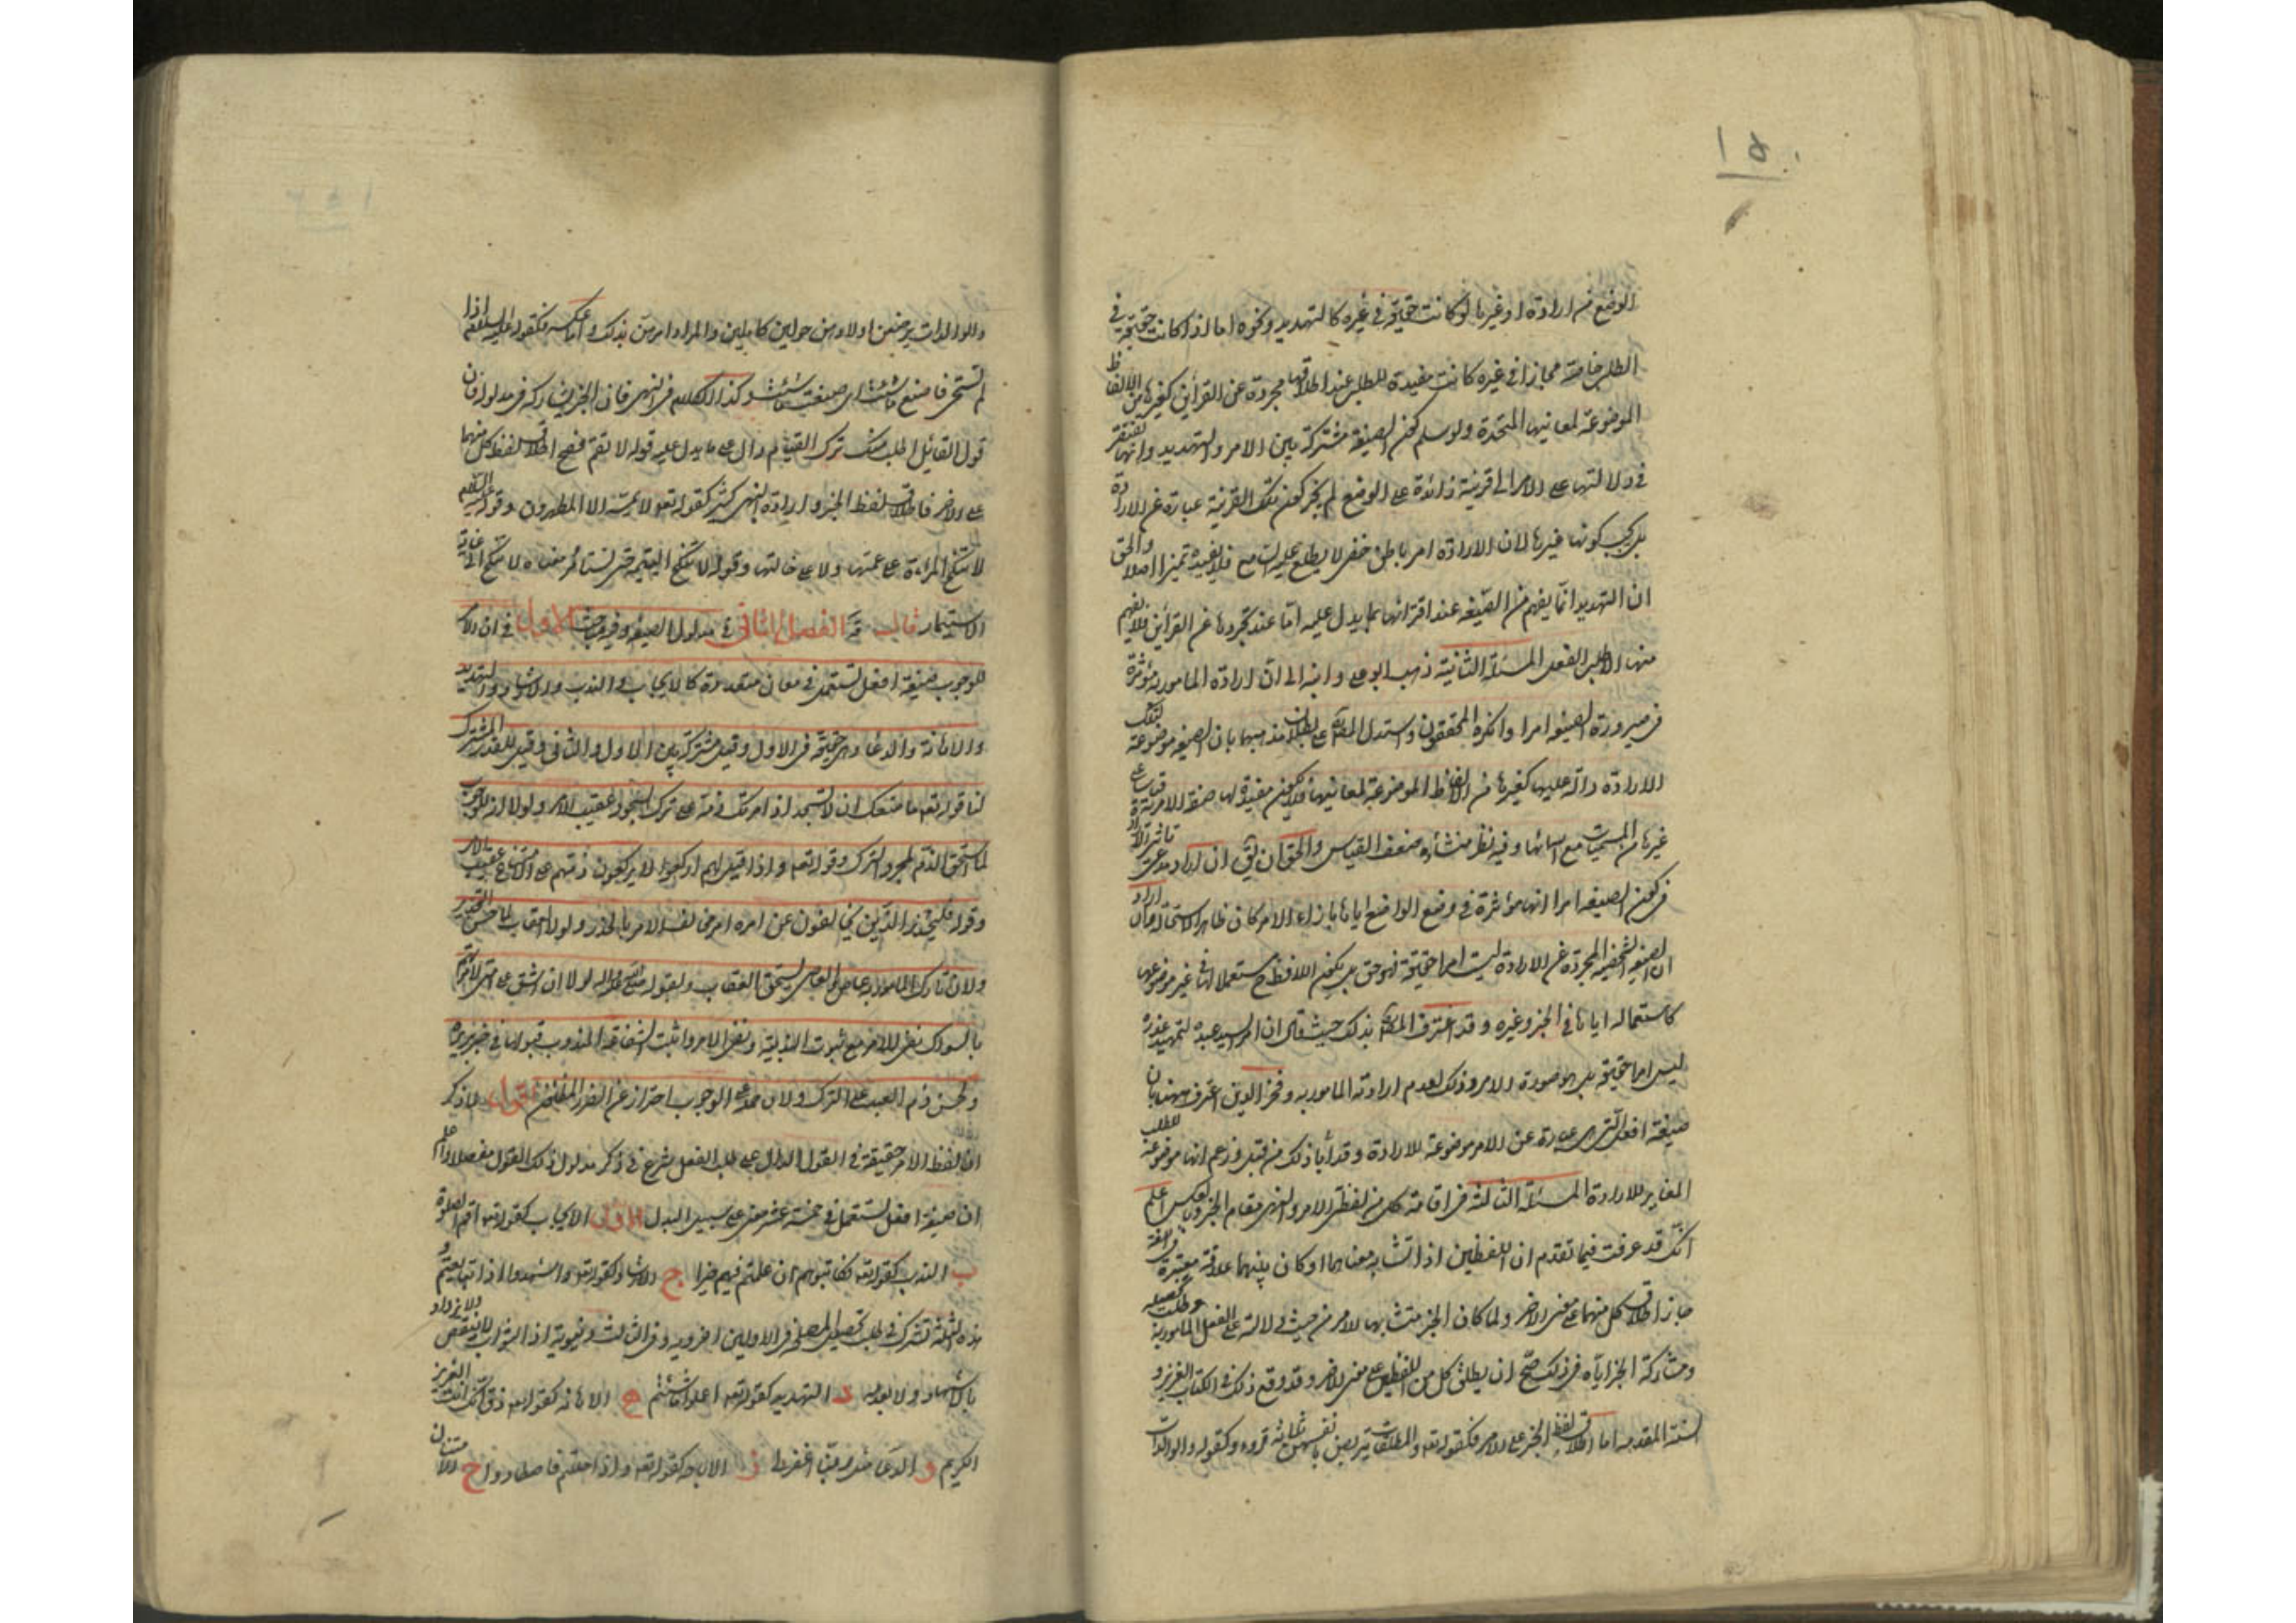 ١٥
الوضع من ارادة او غيرها لو كانت حقيقة في غيره كالتهديد ونحوه اما اذا كانت حقيقة في
الطلب خاصة مجازا في غيره كانت مفيدة للطلب عند اطلاقها مجردة عن القرأين كغيرها من الالفاظ
الموضوعة لمعانيها المتحدة ولو سلم كون الصيغة مشتركة بين الامر والتهديد وانها تفتقر
في دلالتها على الامر الى قرينة زائدة على الوضع لم يجز كون تلك القرينة عبارة عن الارادة
بل يجب كونها غيرها لان الارادة امر باطن خفى لا يطلع عليه السامع فلا يفيده تميزا اصلا والحق
ان التهديد انما يفهم من الصيغه عند اقترانها بما يدل عليه اما عند تجردها عن القرأين فلا يفهم
منها الا طلب الفعل المسئلة الثانية ذهب ابو على وابنه الى ان ارادة المامور به مؤثرة
في صيرورة الصيغه امرا وانكره المحققون واستدل المص على بطلان مذهبهما بان الصيغه موضوعة لتلك
الارادة دالة عليها كغيرها من الالفاظ الموضوعة لمعانيها فلا تكون مفيدة لها صفة الامرية قياسا على
غيرها من المسميات مع اسمائها وفيه نظر منشأه ضعف القياس والحق ان يق ان اراد مدعى تاثير الارادة
في كون الصيغه امرا انها مؤثرة في وضع الواضع اياها بازاء الامر كان ظاهر الاستحالة وان اراد
ان الصيغه الشخصية المجردة عن الارادة ليست امرا حقيقة فهو حق بل يكون اللافظ ح مستعملا لها في غير موضوعها
كاستعماله اياها في الخبر وغيره وقد اعترف المص بذلك حيث قال ان امر السيد عبده لتمهيد عذره
ليس امرا حقيقة بل هو صورة الامر وذلك لعدم ارادته المامور به وفخر الدين اعترف ههنا بان
صيغة افعل التي هي عبارة عن الامر موضوعة للارادة وقد أبا ذلك من قبل وزعم انها موضوعة للطلب
المغاير للارادة المسئلة الثالثة في اقامة كل من لفظى الامر والنهى مقام الخبر وبالعكس اعلم
انك قد عرفت فيما تقدم ان اللفظين اذا تشابه معناهما او كان بينهما علاقة معتبرة في اللغة
جاز اطلاق كل منهما على معنى الاخر ولما كان الخبر متشابها للامر من حيث دلالته على الفعل المامور به
ومشاركة الخبر اياه في ذلك صح ان يطلق كل من اللفظين على معنى الاخر وقد وقع ذلك في الكتاب العزيز و
السنة المقدسه اما اطلاق لفظ الخبر على الامر فكقوله تعه والمطلقات يتربصن بانفسهن ثلثة قروء وكقوله والوالدات
والوالدات يرضعن اولادهن حولين كاملين والمراد امرهن بذلك واما عكسه فكقوله عليه السلم اذا
لم تستحى فاصنع ما شئت اى صنعت ما شئت وكذا الكلام في النهى فان الخبر يشاركه في مدلوله فان
قول القائل اطلب منك ترك القيام دال على ما يدل عليه قوله لا تقم فصح اطلاق لفظ كل منهما
على الاخر فاطلاق لفظ الخبر وارادة النهى كثير كقوله تعه لا يمسه الا المطهرون وقوله عليه السلم
لا تنكح المراءة على عمتها ولا على خالتها وقوله لا تنكح اليتيمة حتى تستأمر معناه لا تنكح الى غاية
الاستيمار قال الفصل الثاني في مدلول الصيغه وفيه مباحث الاول في ان الامر
للوجوب صيغة افعل تستعمل في معان متعددة كالايجاب والندب والارشاد والتهديد
والاهانة والدعاء وهى حقيقة في الاول وقيل مشتركة بين الاول والثاني وقيل للقدر المشترك
لنا قوله تعه ما منعك ان لا تسجد اذ امرتك ذمه على ترك السجود عقيب الامر ولولا انه للوجوب
لما استحق الذم بمجرد الترك وقوله تعه واذا قيل لهم اركعوا لا يركعون ذمهم على الامتناع عقيب الامر
وقوله فليحذر الذين يخالفون عن امره امر مخالف الامر بالحذر ولولا العقاب لما حسن التحذير
ولان تارك المامور به عاص والعاصى يستحق العقاب ولقوله صلى الله عليه واله لولا ان اشق على امتى لامرتهم
بالسواك نفى الامر مع ثبوت الندبية ونفى الامر واثبت الشفاعة المندوب قبولها في خبر بريرة
ولحسن ذم العبد على الترك ولان حمله على الوجوب احتراز عن الضرر المظنون اقول لما ذكر
ان لفظ الامر حقيقة في القول الدال على طلب الفعل شرع في ذكر مدلول ذلك القول مفصلا واعلم
ان صيغة افعل تستعمل في خمسة عشر معنى على سبيل البدل الاول الايجاب كقوله تعه اقم الصلوة
ب الندب كقوله تعه فكاتبوهم ان علمتم فيهم خيرا ج الارشاد كقوله تعه واشهدوا اذا تبايعتم و
هذه الثلثة تشترك في طلب تحصيل المصلحة في الاولين اخروية وفي الثالث دنيوية اذ الثواب لا ينقص ولا يزداد
بالاشهاد ولا بعدمه د التهديد كقوله تعه اعملوا ما شئتم ه الاهانة كقوله تعه ذق انك انت العزيز
الكريم و الدعاء مثل ربنا اغفر لنا ز الاباحة كقوله تعه واذا حللتم فاصطادوا ح الامتنان